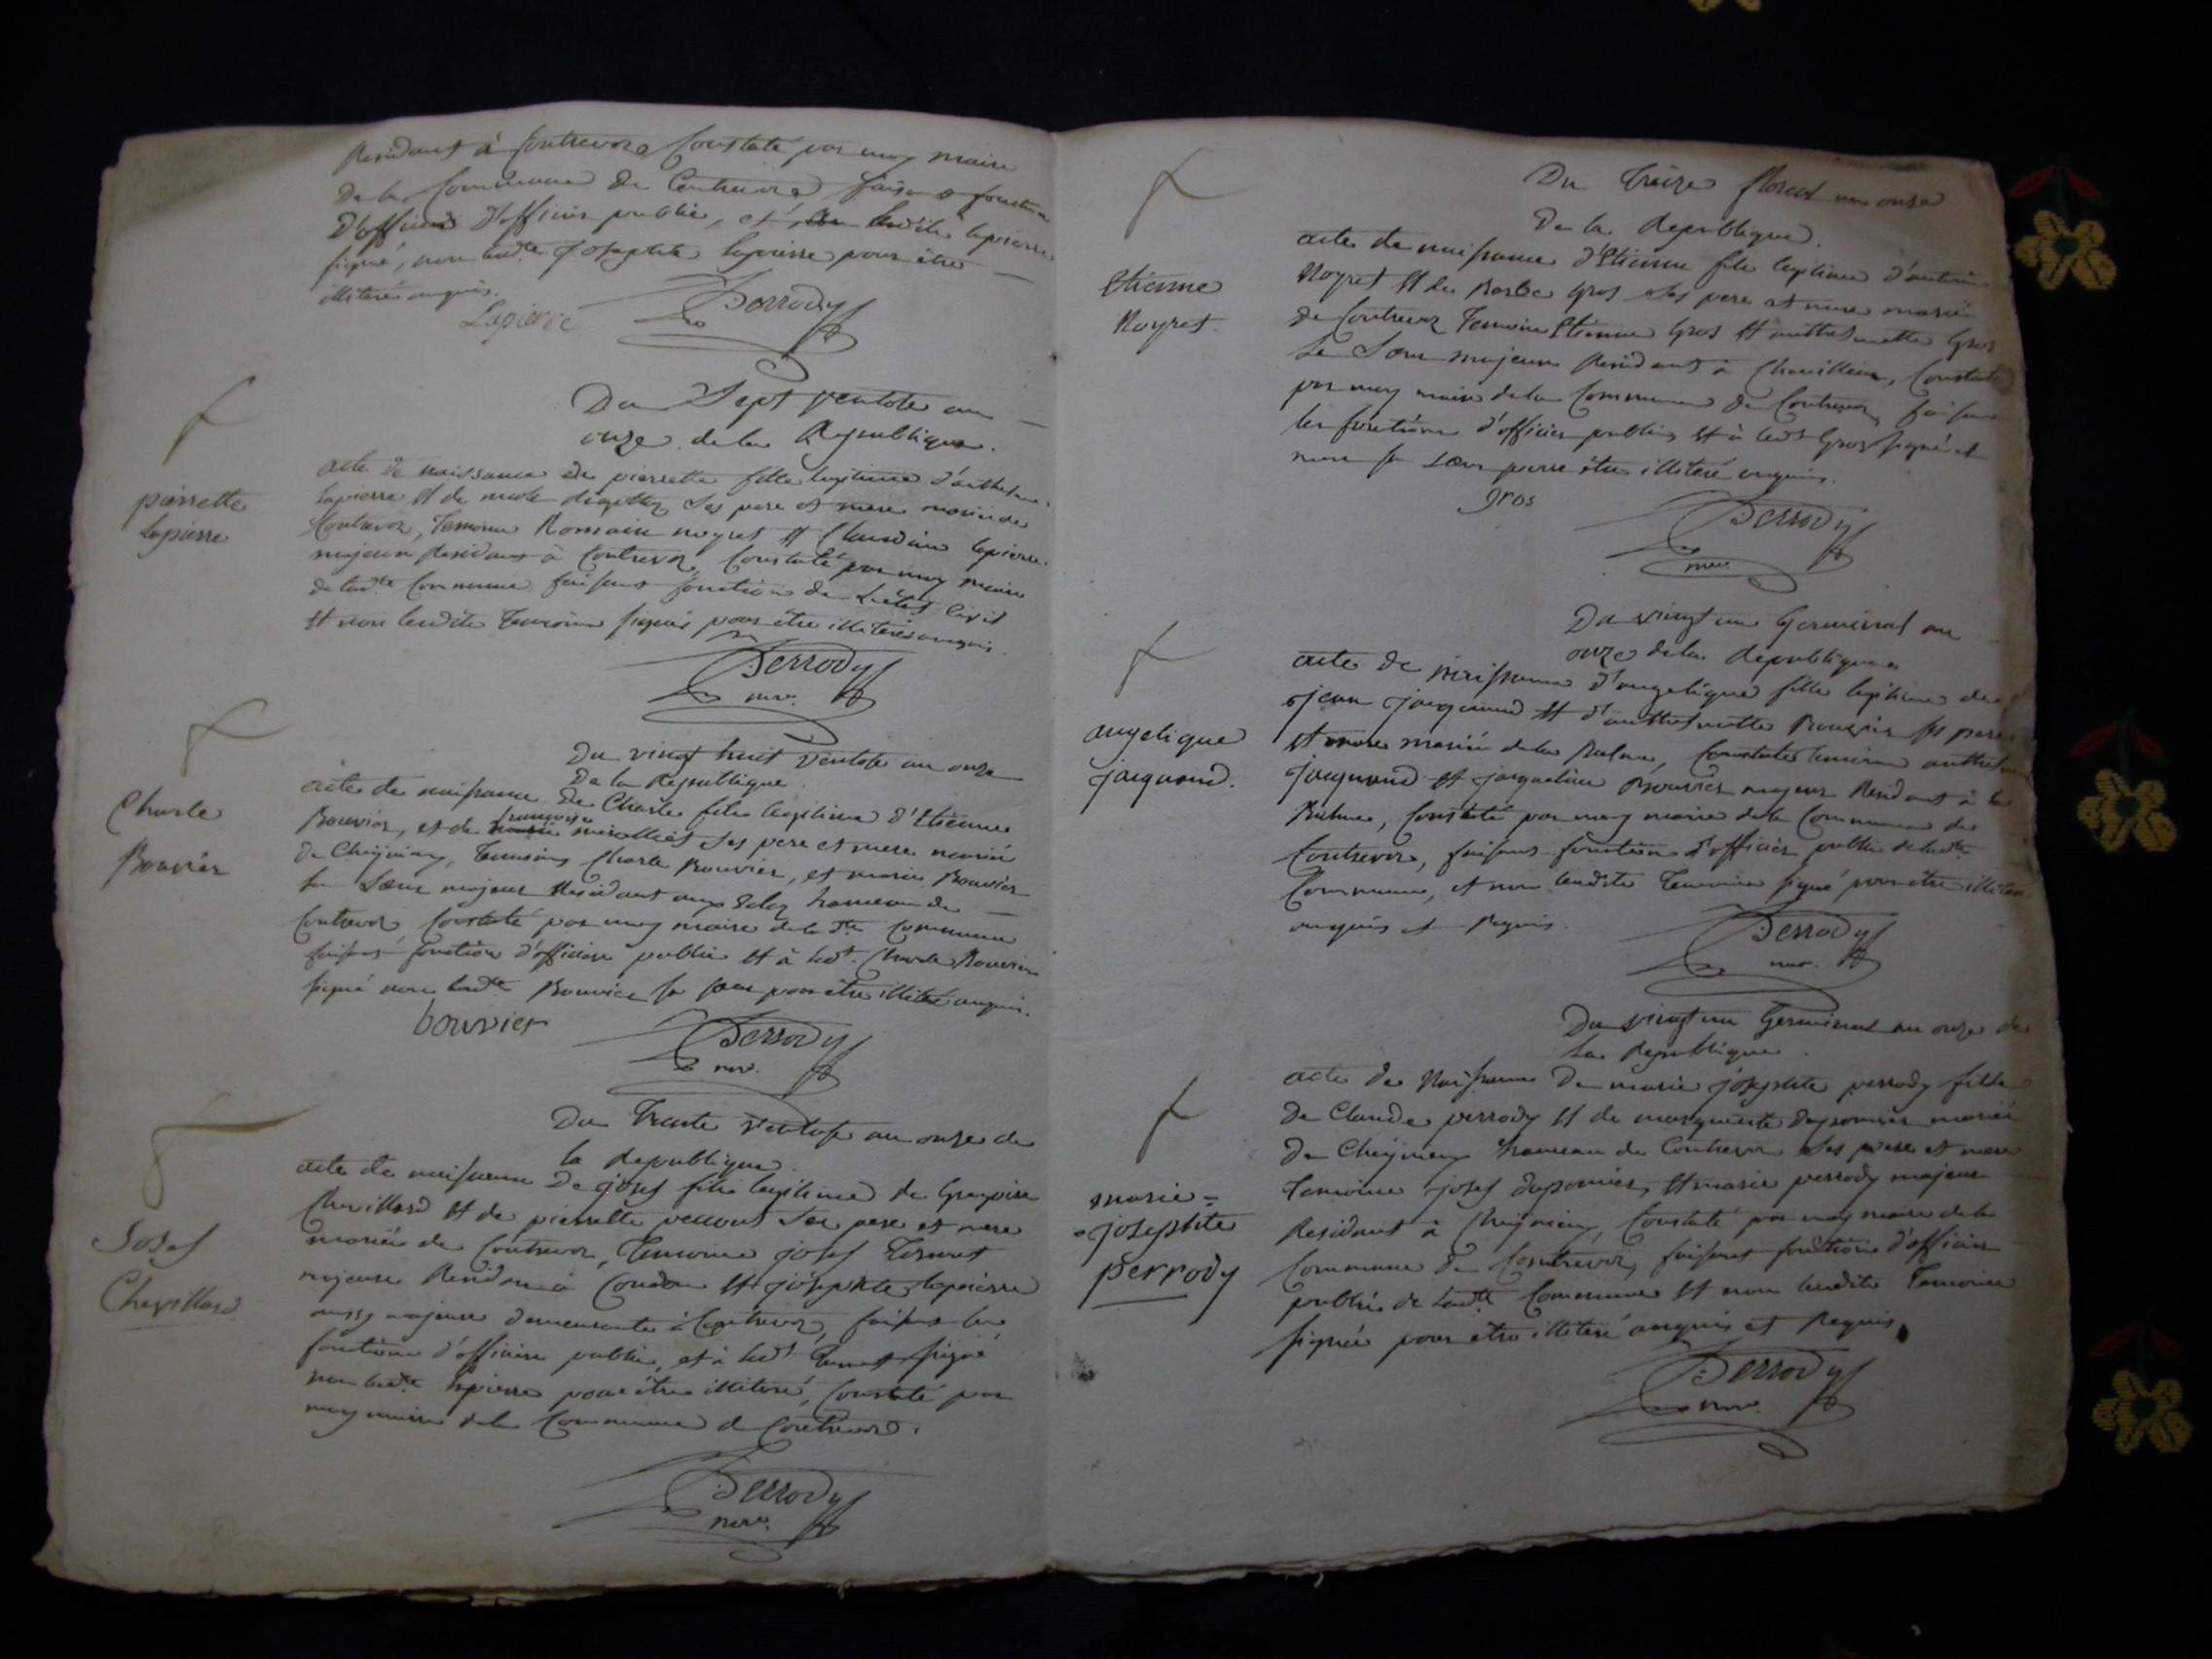 Residants à Contrevoz Constaté par moy maire
De la Commune de Contrevoz faisans fonction
D'officier publié, et ledite lapierre
signé, non ladte Josephte lapierre pour être
illiteré enquis.
Lapierre
Perrody
Du Sept ventose an
onze de la Republique.
acte de naissance de pierrette fille legitime d'anthelme
lapierre et de nicole ses pere et mere mariés de
Contrevoz, Temoins Romain noyret et Claudine lapierre
majeurs Residans à Contrevoz, Constaté par moy maire
de ladte Commune faisans fonction de l'état Civil
et non lesdits Temoins signés pour être illiterés enquis.
pierrette
lapierre
Perrody
mre.
Du vingt huit ventose an onze
De la Republique.
acte de naissance De Charle fils legitime d'Etienne
Bouvier, et de françoise ses pere et mere mariés
de Cheignieu, Temoins Charle Bouvier, et marie Bouvier
sa Sœur majeur Residant hameau de
Contrevoz Constaté par moy maire de la dte Commune
faisans fonction d'officier publié et à ledt Charle Bouvier
signé non ladte Bouvier sa sœur pour être illiteré enquis.
Charle
Bouvier
bouvier
Perrody
mre.
Du Trente Ventose an onze de
la Republique.
acte de naissance De josef fils legitime de Gregoire
Chevillard et de pierrette ses pere et mere
mariés de Contrevoz, Temoins josef
majeurs Residan à Condon et josephte lapierre
aussy majeure demeurante à Contrevoz, faisans les
fonctions d'officier publié, et à ledt signé
non ladte lapierre pour être illiteré, Constaté par
moy maire de la Commune de Contrevoz.
Josef
Chevillard
Perrody
mre.
Du Treize floreal an onze
De la Republique.
acte de naissance d'Etienne fils legitime d'antoine
Noyret et de Barbe gros ses pere et mere mariés
de Contrevoz Temoins Etienne Gros et anthelmette Gros
sa Sœur majeurs Residans à Constaté
par moy maire de la Commune de Contrevoz, faisans
les fonctions d'officier publié et à ledt Gros signé et
non sa sœur pour être illiteré enquis.
Etienne
Noyret.
gros
Perrody
mre.
Du vingt un Germinal an
onze de la Republique
acte de naissance d'angelique fille legitime de
jean jacquand et d'anthelmette Bouvier ses pere
et mere mariés de la Balme, Constaté temoins anthelme
jacquand et jacqueline Bouvier majeur Residant à la
Balme, Constaté par moy maire de la Commune de
Contrevoz, faisans fonction d'officier publié de ladte
Commune, et non lesdits Temoins signé pour être illiteré
enquis et Requis.
angelique
jacquand.
Perrody
mre.
Du vingt un Germinal an onze de
La Republique.
acte de Naissance De marie josephte perrody fille
De Claude perrody et de marguerite duponnier mariés
De Cheignieu hameau de Contrevoz ses pere et mere
Temoins josef duponnier, et marie perrody majeurs
Residant à Cheignieu, Constaté par moy maire de la
Commune De Contrevoz, faisans fonction d'officier
publié de ladte Commune et non lesdits Temoins
signés pour être illiteré enquis et Requis.
marie=
=josephte
perrody
Perrody
mre.